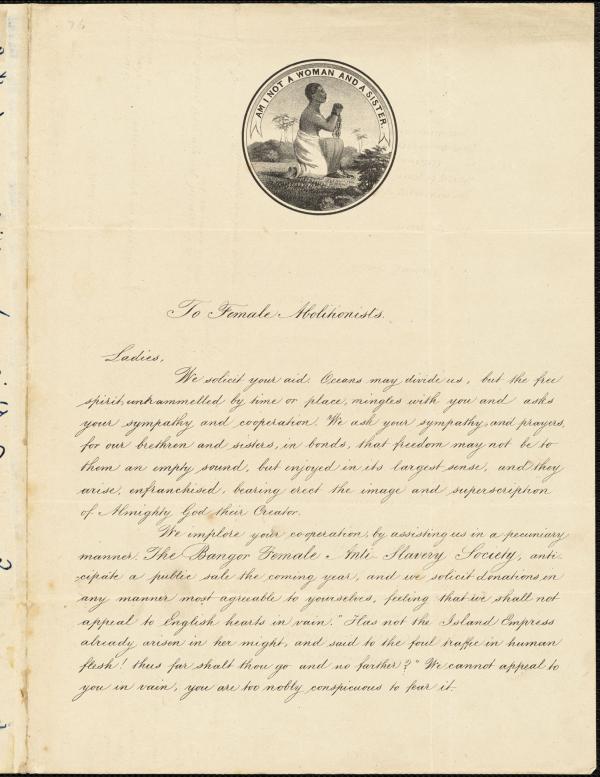 AM I NOT A WOMAN AND A SISTER.
To Female Abolitionists.
Ladies,
We solicit your aid. Oceans may divide us, but the free
spirit, untrammelled by time or place, mingles with you and asks
your sympathy and cooperation. We ask your sympathy, and prayers,
for our brethren and sisters, in bonds, that freedom may not be to
them an empty sound, but enjoyed in its largest sense, and they
arise, enfranchised, bearing erect the image and superscription
of Almighty God their Creator.
We implore your co-operation, by assisting us in a pecuniary
manner. The Bangor Female Anti Slavery Society, anti-
-cipate a public sale the coming year, and we solicit donations in
any manner most agreeable to yourselves, feeling that we shall not
appeal to English hearts in vain. "Has not the Island Empress
already arisen in her might, and said to the foul traffic in human
flesh! thus far shalt thou go and no farther?" We cannot appeal to
you in vain, you are too nobly conspicuous to fear it.-